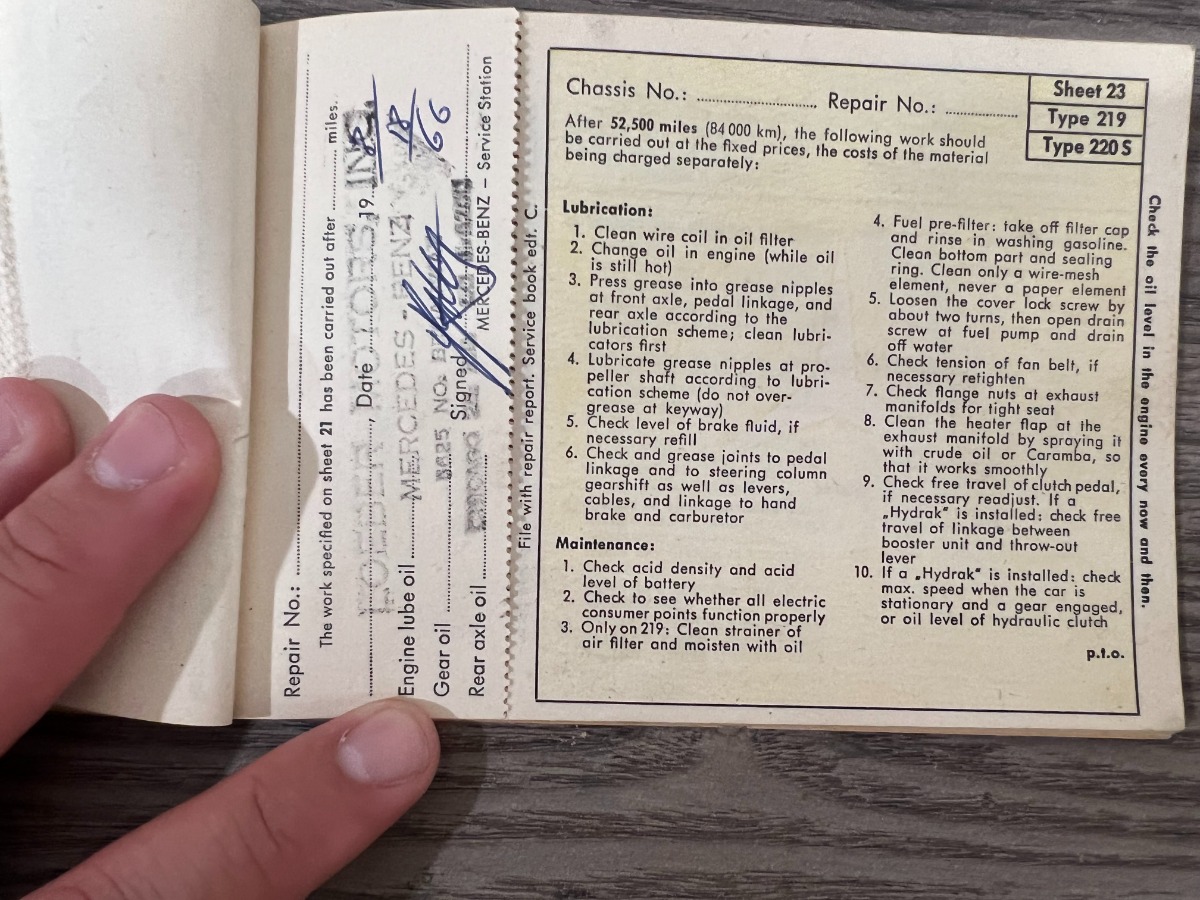 Repair No.:
The work specified on sheet 21 has been carried out after miles.
LOEBER MOTORS, INC.
, Date 19
Engine lube oil
MERCEDES - BENZ
18
Gear oil
5625 NO.
66
Rear axle oil
Signed
MERCEDES-BENZ – Service Station
File with repair report. Service book edt. C.
Chassis No.: Repair No.:
Sheet 23
Type 219
Type 220 S
After 52,500 miles (84 000 km), the following work should
be carried out at the fixed prices, the costs of the material
being charged separately:
Lubrication:
1. Clean wire coil in oil filter
2. Change oil in engine (while oil
is still hot)
3. Press grease into grease nipples
at front axle, pedal linkage, and
rear axle according to the
lubrication scheme; clean lubri-
cators first
4. Lubricate grease nipples at pro-
peller shaft according to lubri-
cation scheme (do not over-
grease at keyway)
5. Check level of brake fluid, if
necessary refill
6. Check and grease joints to pedal
linkage and to steering column
gearshift as well as levers,
cables, and linkage to hand
brake and carburetor
Maintenance:
1. Check acid density and acid
level of battery
2. Check to see whether all electric
consumer points function properly
3. Only on 219: Clean strainer of
air filter and moisten with oil
4. Fuel pre-filter: take off filter cap
and rinse in washing gasoline.
Clean bottom part and sealing
ring. Clean only a wire-mesh
element, never a paper element
5. Loosen the cover lock screw by
about two turns, then open drain
screw at fuel pump and drain
off water
6. Check tension of fan belt, if
necessary retighten
7. Check flange nuts at exhaust
manifolds for tight seat
8. Clean the heater flap at the
exhaust manifold by spraying it
with crude oil or Caramba, so
that it works smoothly
9. Check free travel of clutch pedal,
if necessary readjust. If a
„Hydrak“ is installed: check free
travel of linkage between
booster unit and throw-out
lever
10. If a „Hydrak“ is installed: check
max. speed when the car is
stationary and a gear engaged,
or oil level of hydraulic clutch
p.t.o.
Check the oil level in the engine every now and then.